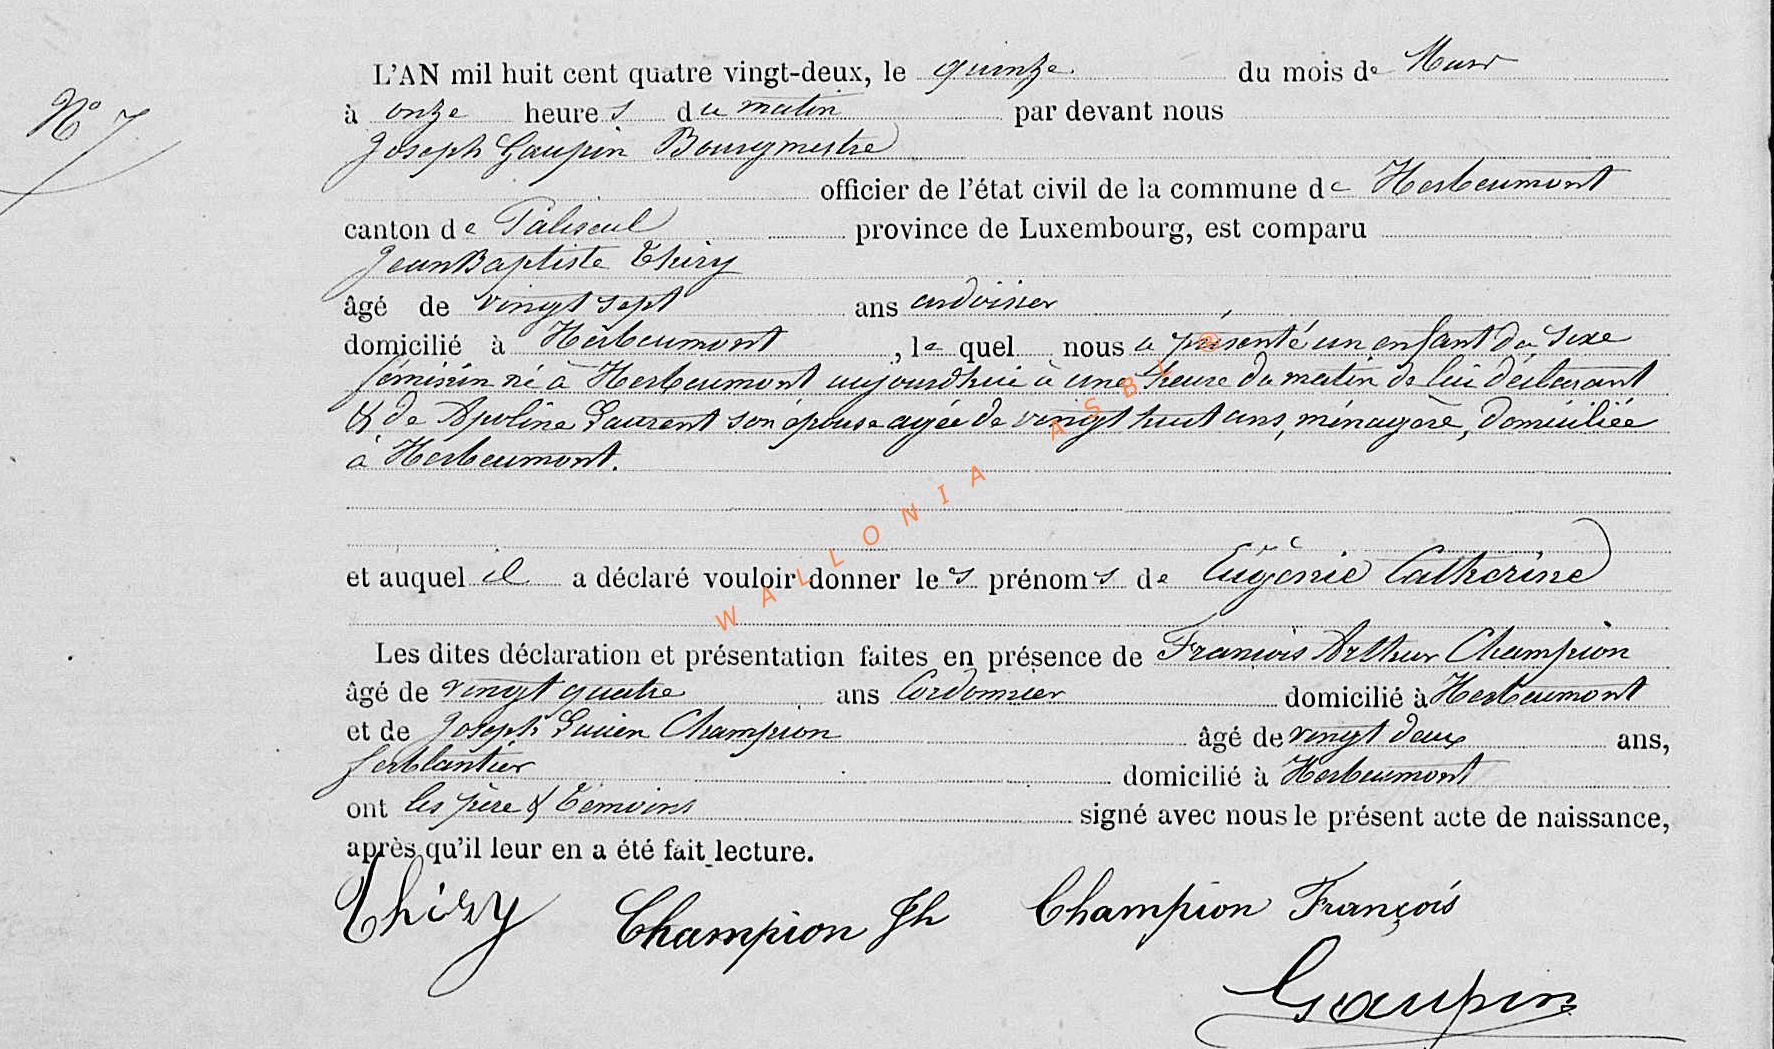 N° 7
L'AN mil huit cent quatre vingt-deux, le quinze du mois de Mars
à onze heures du matin par devant nous
Joseph Gaupin Bourgmestre
officier de l'état civil de la commune de Herbeumont
canton de Paliseul province de Luxembourg, est comparu
Jean Baptiste Thiry
âgé de vingt sept ans ardoisier
domicilié à Herbeumont, lequel nous a présenté un enfant du sexe
féminin né à Herbeumont aujourd'hui à une heure du matin de lui déclarant
& de Apoline Laurent son épouse agée de vingt huit ans, ménagère, domiciliée
à Herbeumont.
et auquel il a déclaré vouloir donner les prénoms de Eugénie Catherine
Les dites déclaration et présentation faites en présence de Francois Arthur Champion
âgé de vingt quatre ans Cordonnier domicilié à Herbeumont
et de Joseph Lucien Champion âgé de vingt deux ans,
ferblantier domicilié à Herbeumont
ont les père & témoins signé avec nous le présent acte de naissance,
après qu'il leur en a été fait lecture.
Thiry Champion Jh Champion François
Gaupin
WALLONIA ASBL ®